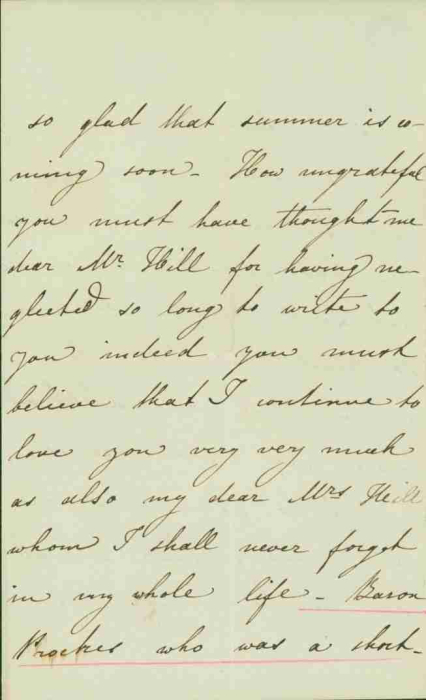 so glad that summer is co-
ming soon - How ungrateful
you must have thought me
dear Mr. Hill for having ne-
glected so long to write to
you indeed you must
believe that I continue to
love you very very much
as also my dear Mrs Hill
whom I shall never forget
in my whole life - Baron
Prockes who was a short-